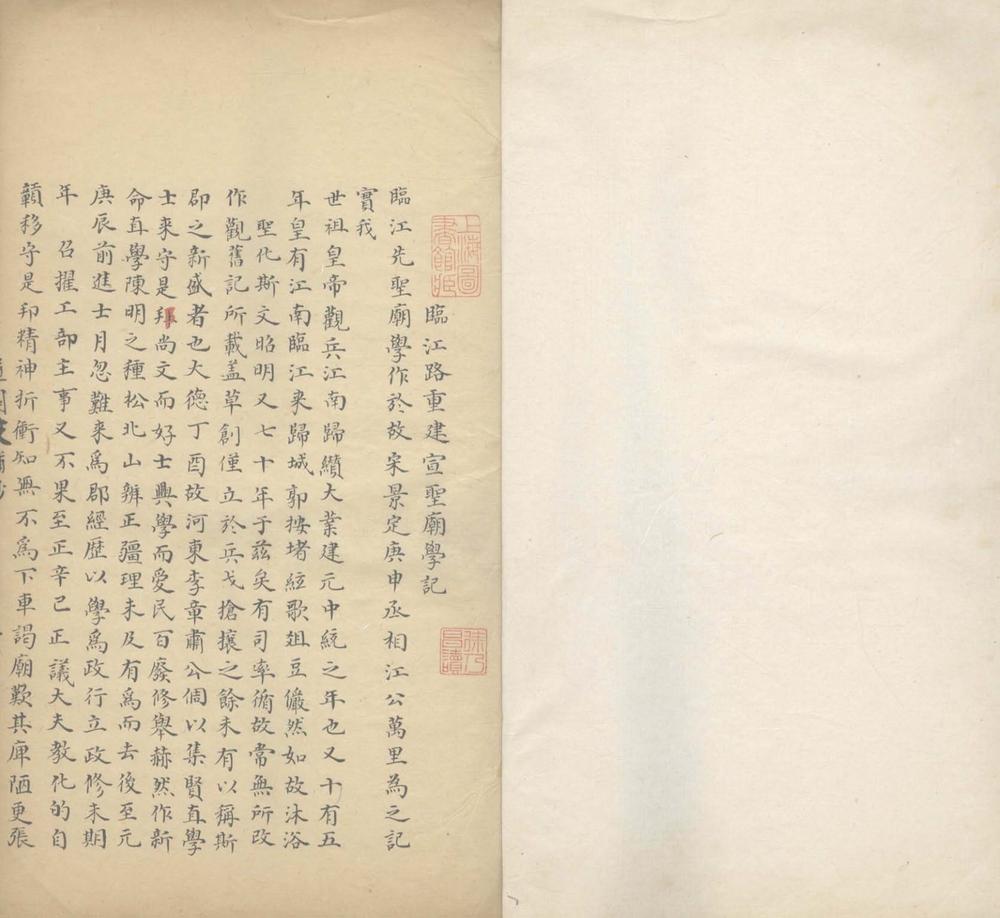 臨江路重建宣聖廟學記
臨江先聖廟學作於故宋景定庚申丞相江公萬里為之記
實我
世祖皇帝觀兵江南歸纘大業建元中統之年也又十有五
年皇有江南臨江来歸城郭按堵絃歌俎豆儼然如故沐浴
聖化斯文昭明又七十年于茲矣有司率循故常無所改
作觀舊記所載盖草創僅立於兵戈搶攘之餘未有以稱斯
郡之新盛者也大德丁酉故河東李章肅公倜以集賢直學
士来守是邦尚文而好士興學而愛民百廢修舉赫然作新
命直學陳明之種松北山辨正疆理未及有為而去後至元
庚辰前進士月忽難来爲郡經歷以學爲政行立政修未期
年 召擢工部主事又不果至正辛已正議大夫教化的自
贛移守是邦精神折衝知無不爲下車謁廟歎其庳陋更張
上海圖書館藏